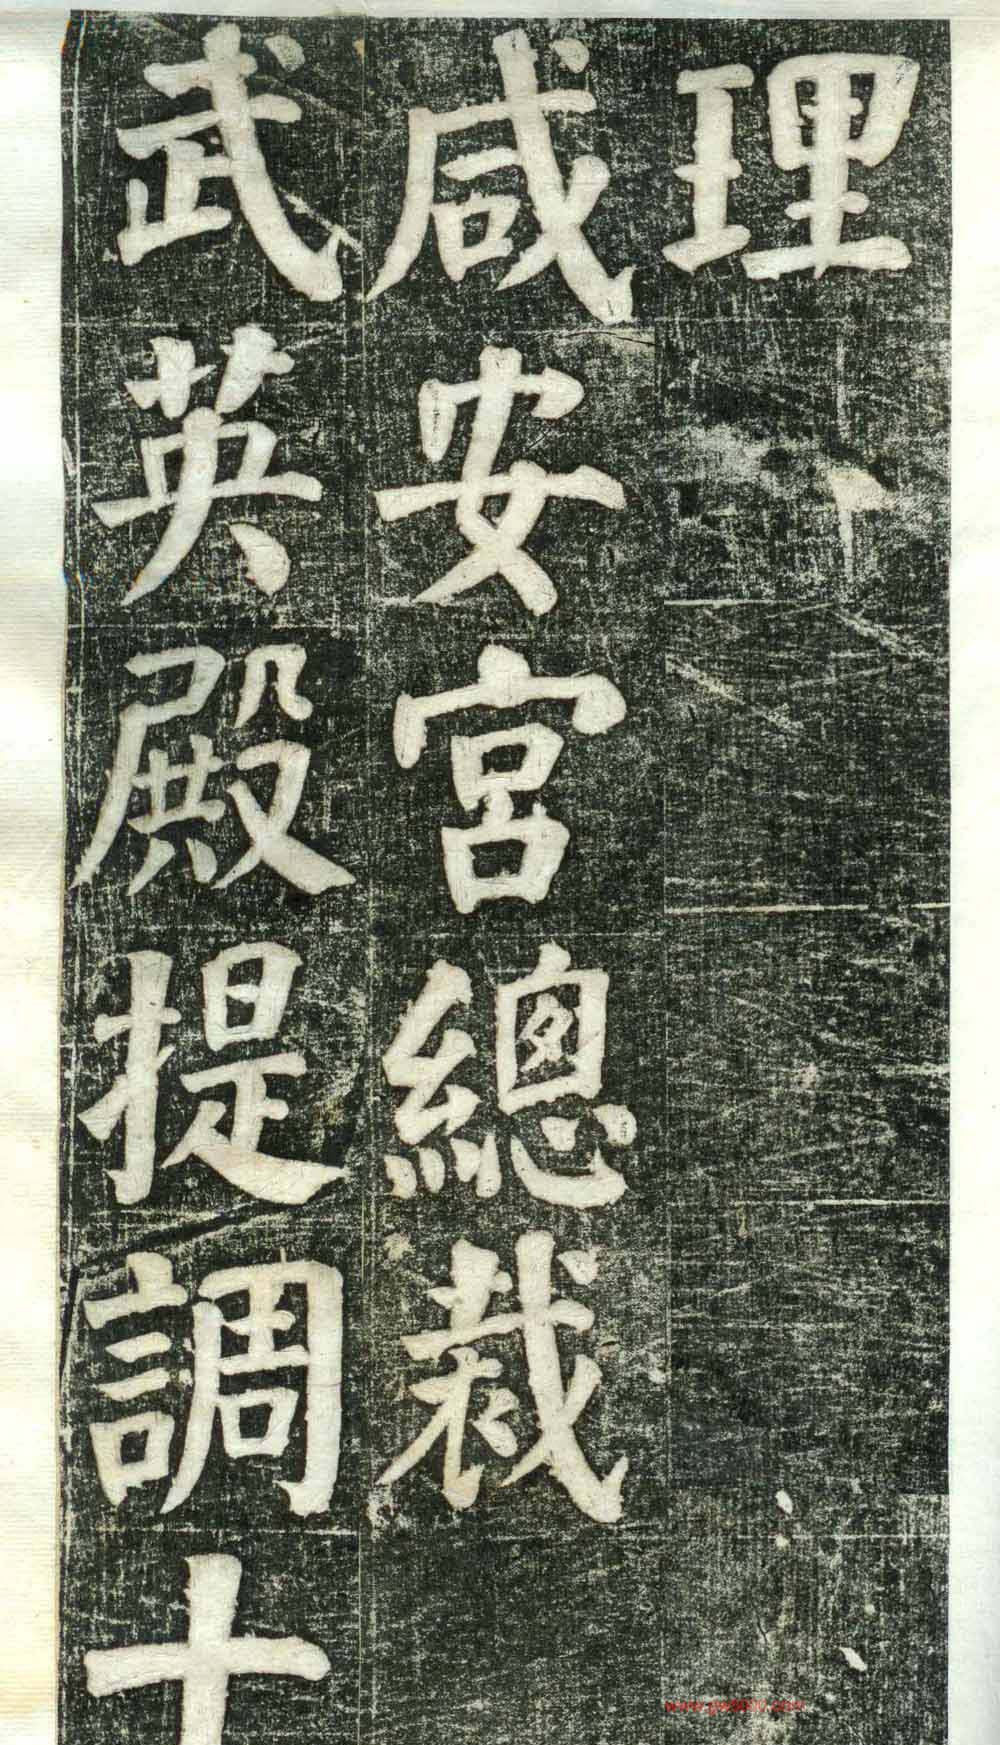 理
咸安宮總裁
武英殿提調十
www.gw8000.com